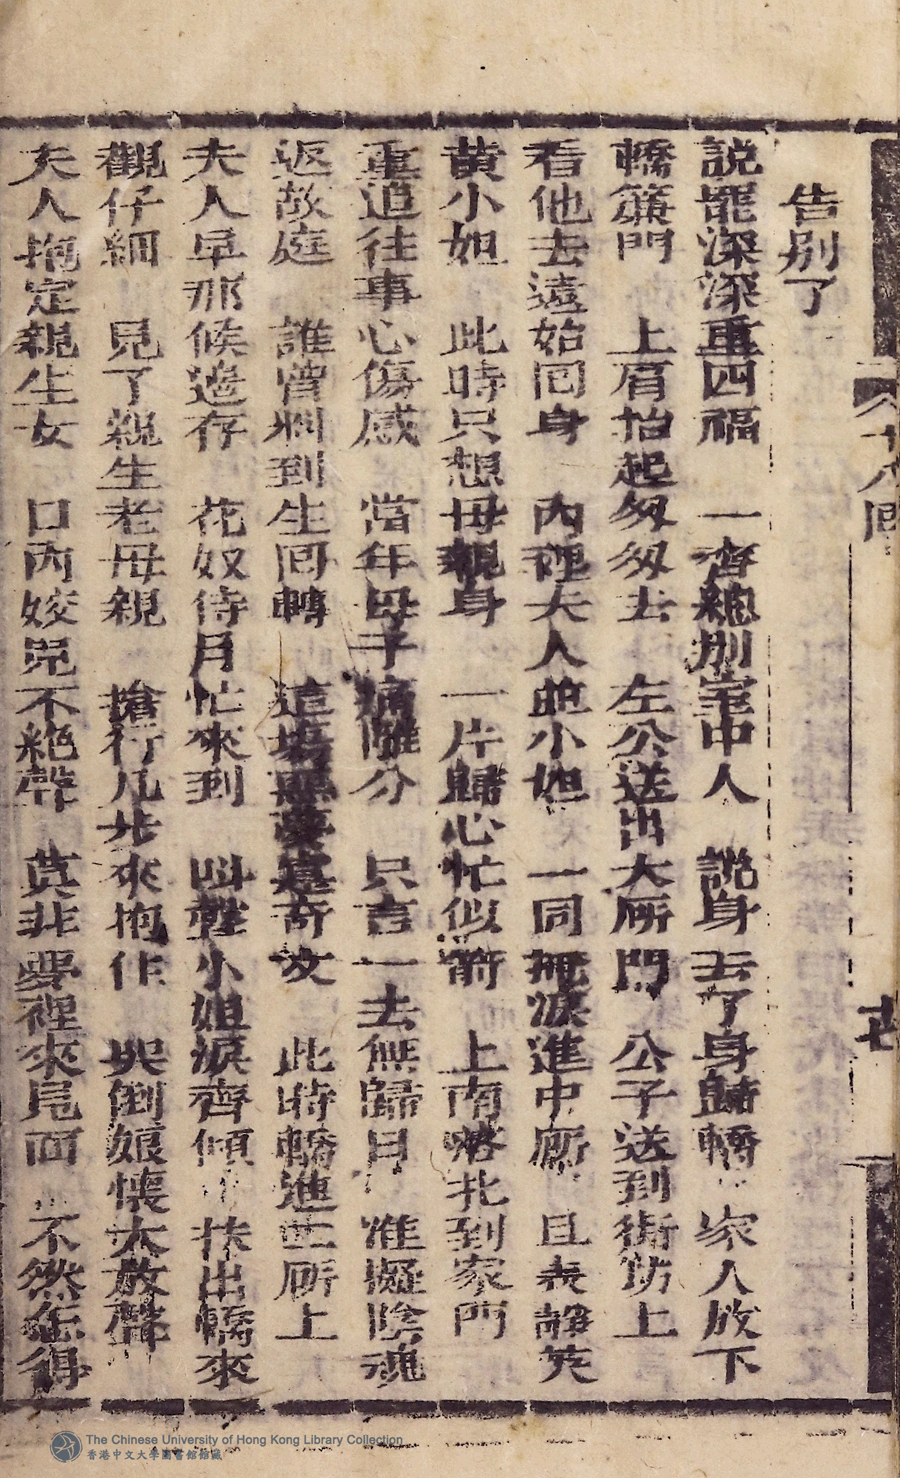 告別了
說罷深深重四福 一齊總別室中人 說身去了身歸轎 家人放下
轎簾門 上肩抬起匆匆去 左公送出大所門 公子送到街坊上
看他去遠始囘身 內裡夫人並小姐 一同掩淚進中所 且表
黃小姐 此時只想母親身 一片歸心忙似箭 上南落北到家門
重追往事心傷感 當年母子痛離分 只言一去無歸日 准擬陰魂
返故庭 誰曾料到生囘轉 這塲惡夢寔奇文 此時轎進二所上
夫人早那候邉存 花奴侍月忙來到 叫聲小姐淚齊傾 扶出轎來
觀仔細 見了親生老母親 搶行几步來抱住 哭倒娘懷大放聲
夫人抱定親生女 口內姣兒不絕聲 莫非夢裡來見面 不然怎得
十八囘
The Chinese University of Hong Kong Library Collection
香港中文大學圖書館館藏